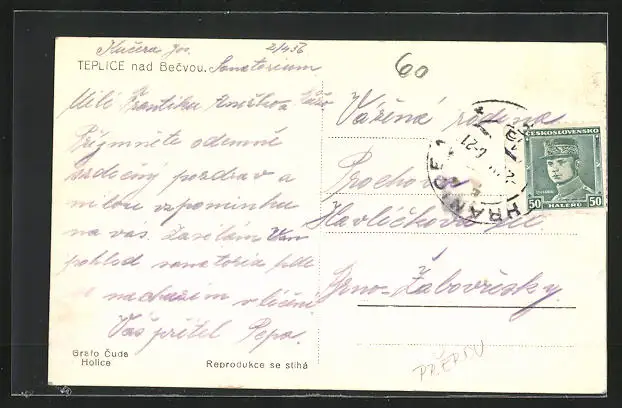 Kučera Jos. 2/4 36
TEPLICE nad Bečvou. Sanatorium
60
Milí Frantíku
Přijměte odemně
srdečný pozdrav a
milou vzpomínku
na vás. Zasílám Vám
pohled sanatoria kde
nacházím v léčení
Váš přítel Pepa.
Grafo Čuda
Holice
Reprodukce se stíhá
Vážená rodina
Prochova
Havlíčkova ul
Brno-Žabovřesky
HRANICE 1
ČESKOSLOVENSKO
50 HALÉŘŮ 50
PŘEROV